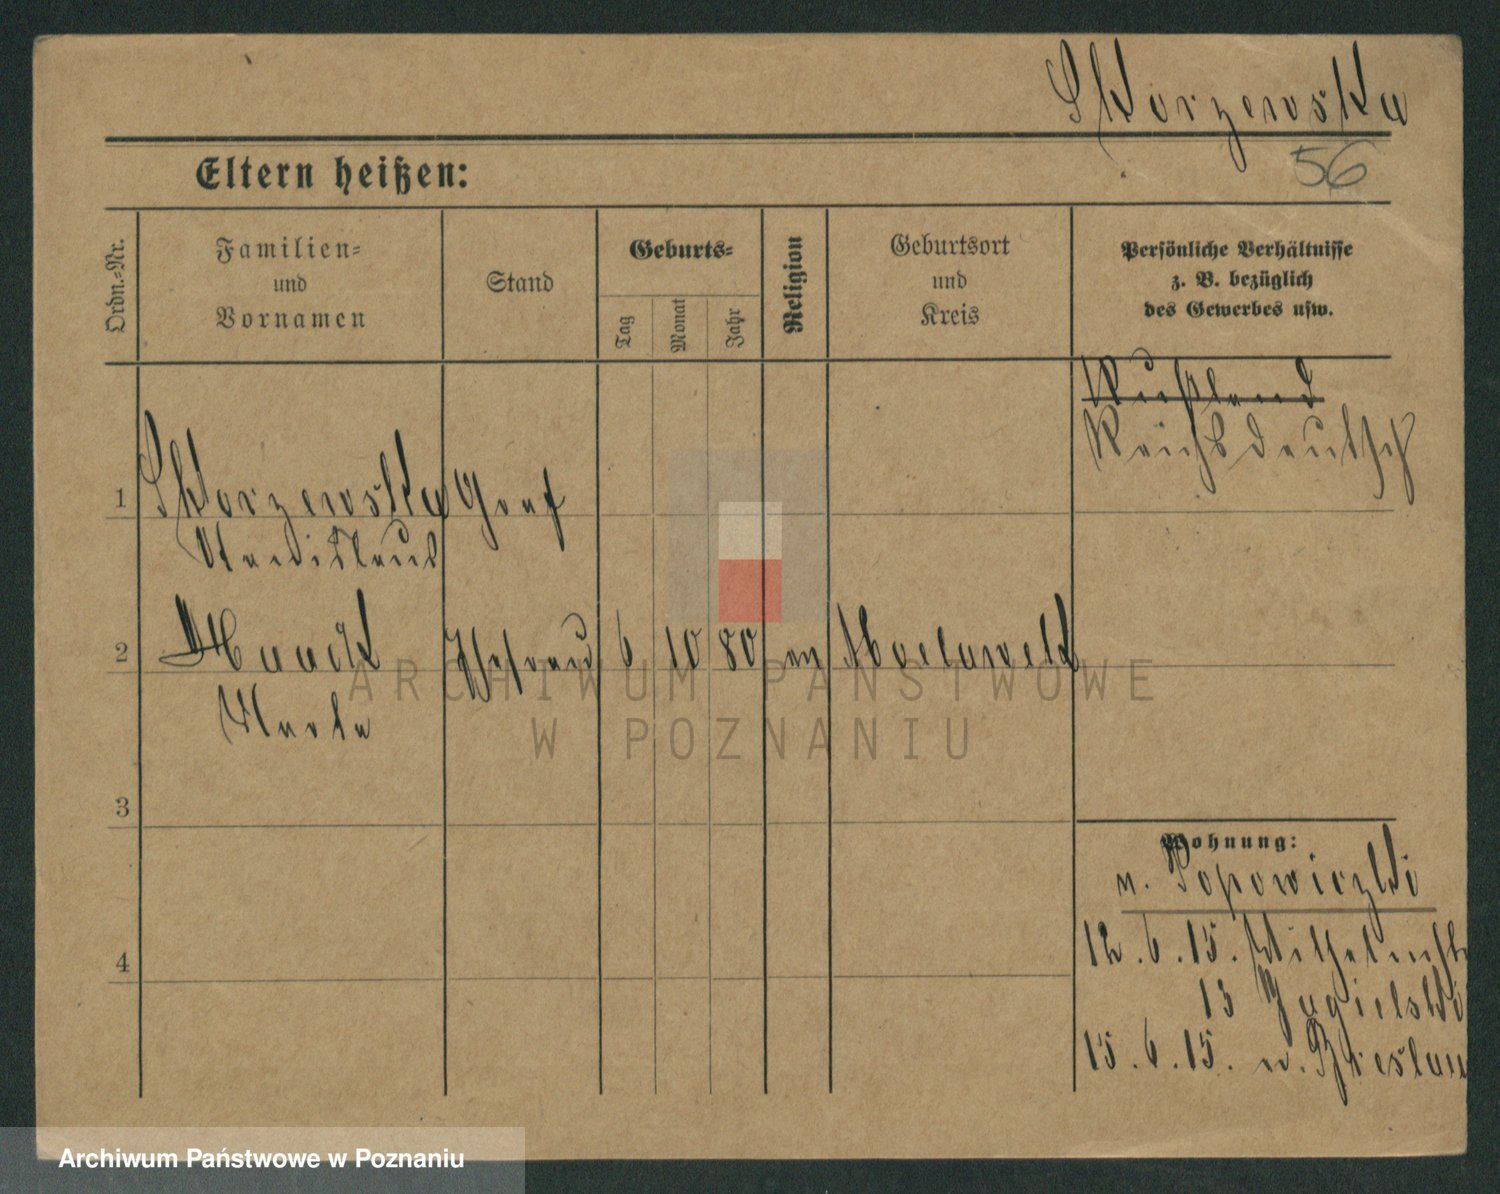 Skorzewska
Eltern heißen:
56
Ordn.-Nr.
Familien-
und
Vornamen
Stand
Geburts-
Tag
Monat
Jahr
Religion
Geburtsort
und
Kreis
Persönliche Verhältnisse
z. B. bezüglich
des Gewerbes usw.
Rußland
Reichsdeutsch
1 Skorzewska Graf
Wladislaus
2 Ehefrau 6 10 80
3
4
Wohnung:
n. Popowiczki
12.6.15. Wilhelmstr
13 Jagielski
15.6.15. n. Breslau
ARCHIWUM PAŃSTWOWE
W POZNANIU
Archiwum Państwowe w Poznaniu